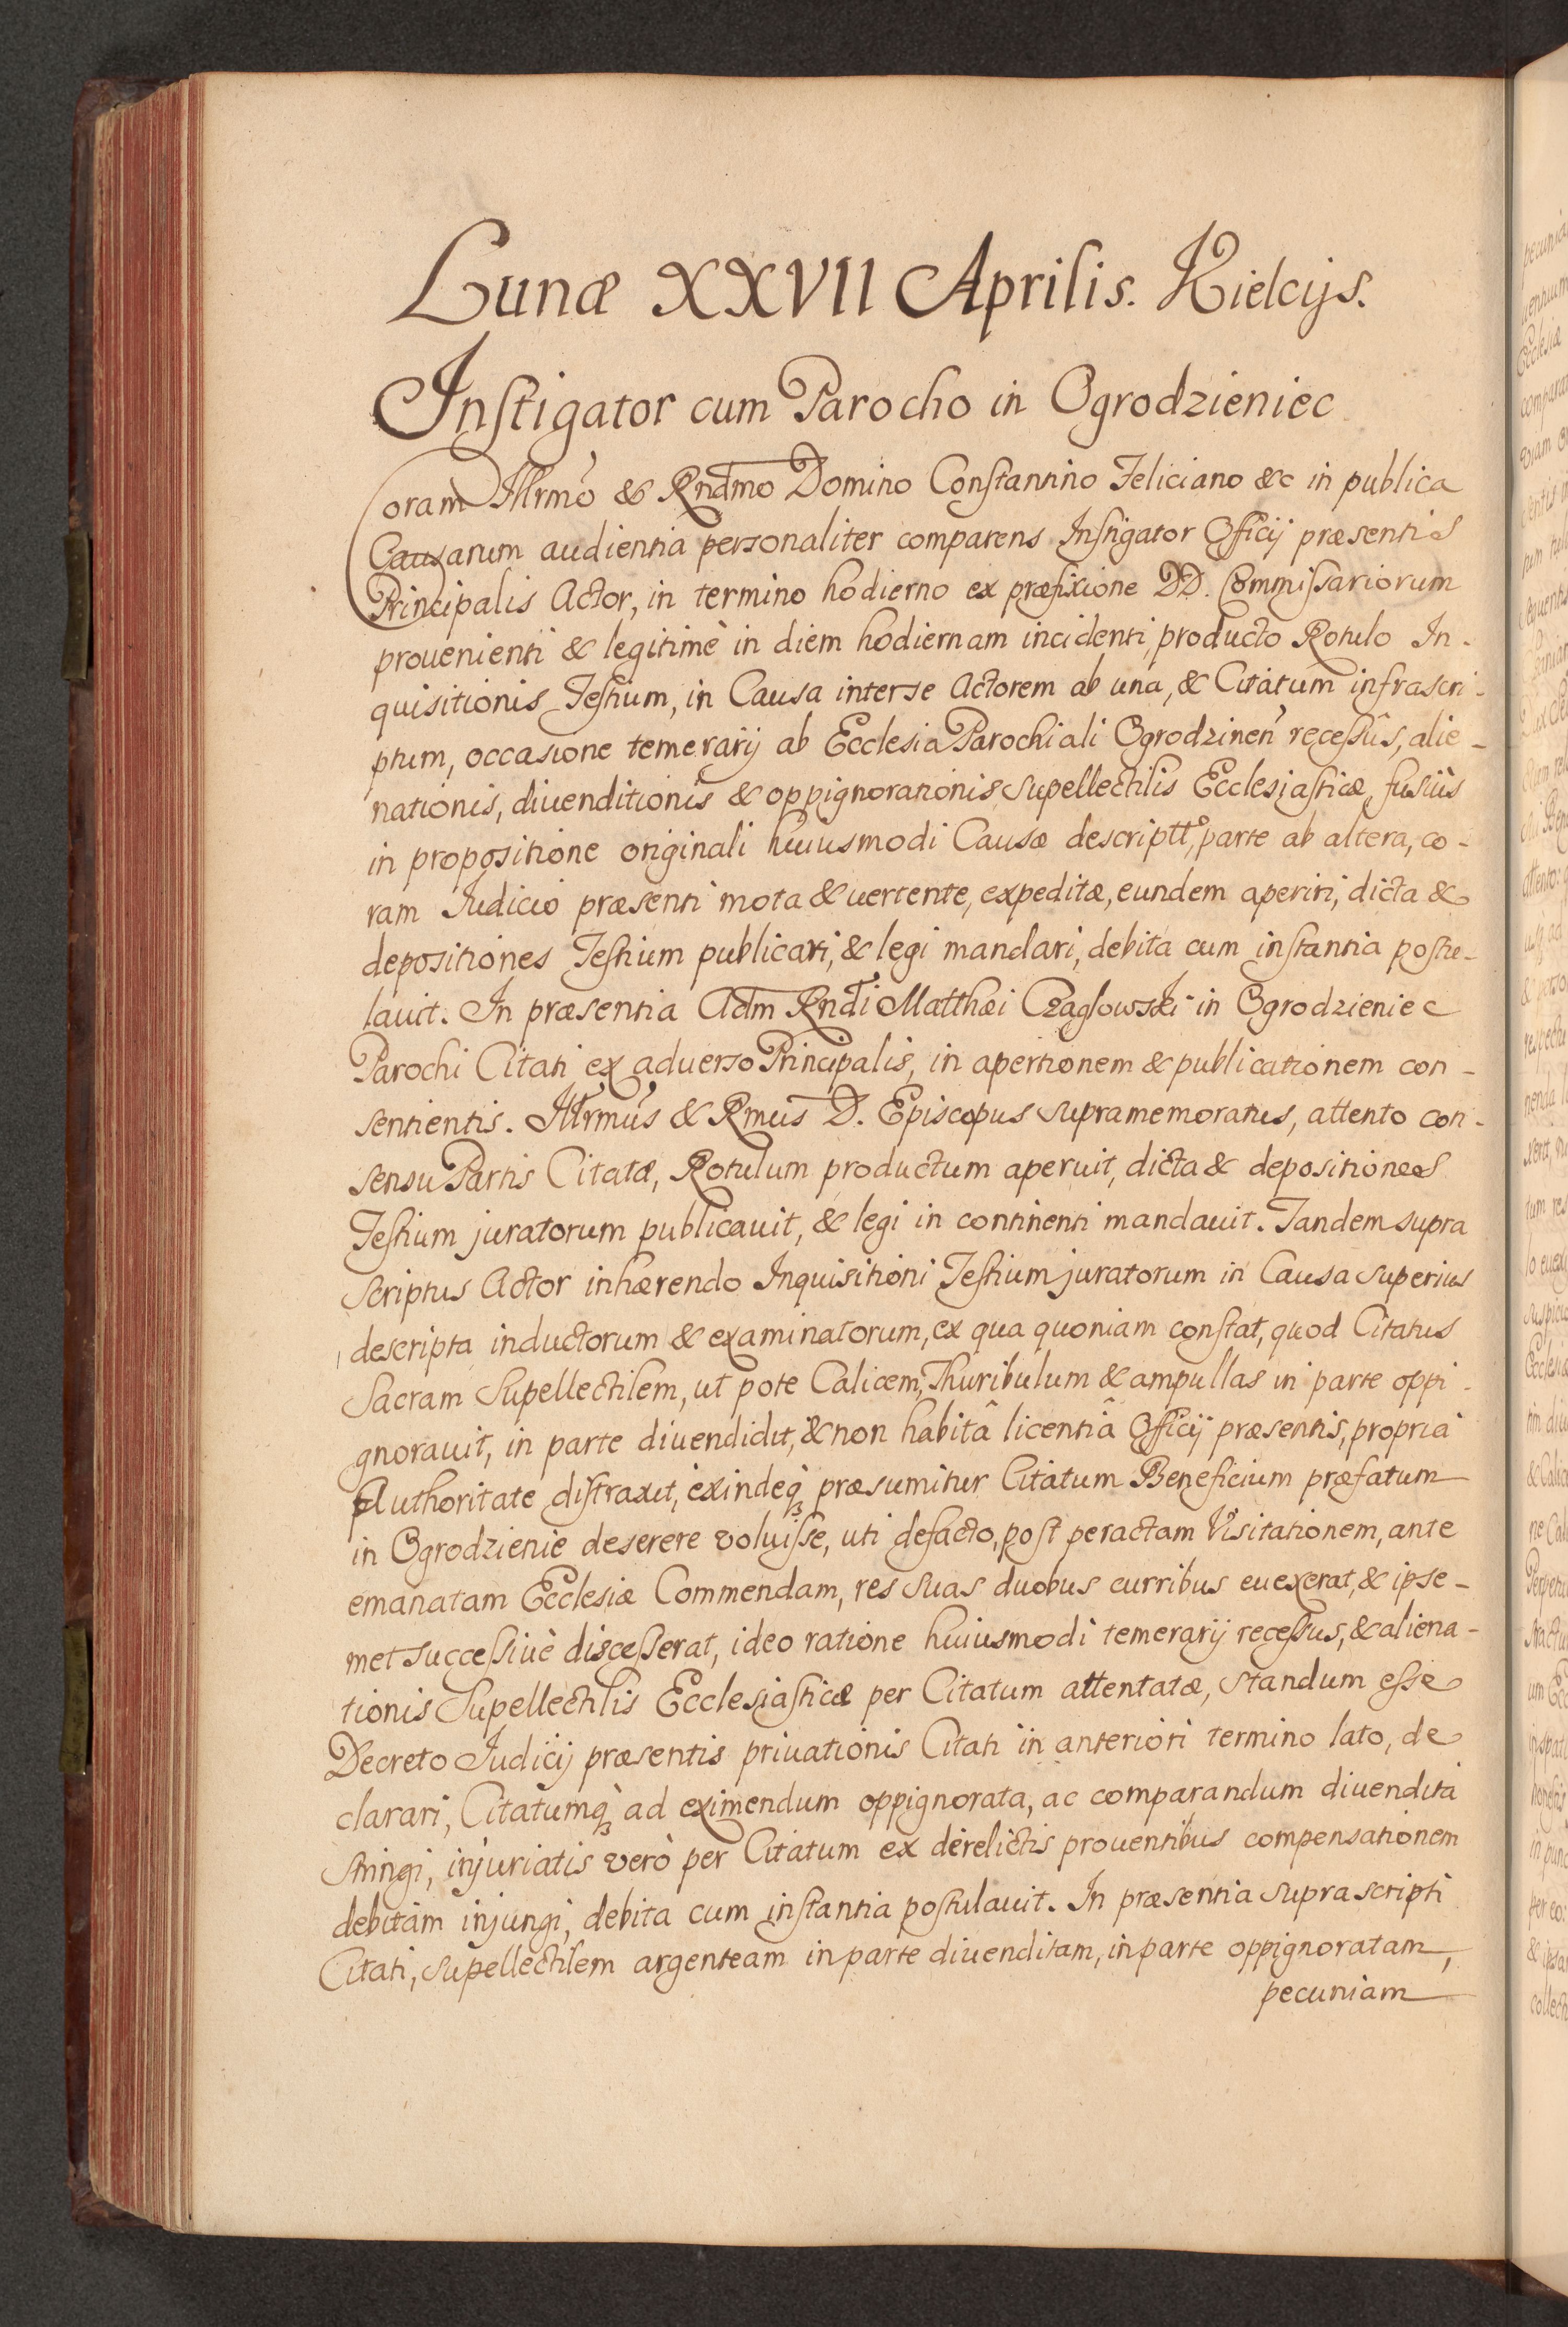 Lunæ XXVII Aprilis. Kielcijs.
Instigator cum Parocho in Ogrodzieniec
Coram Illrmo & Rndmo Domino Constantino Feliciano &c in publica
Causarum audientia personaliter comparens Instigator Officij præsentis
Principalis Actor, in termino hodierno ex præfixione DD. Commissariorum
prouenienti & legitimè in diem hodiernam incidenti, producto Rotulo In-
quisitionis Testium, in Causa interse Actorem ab una, & Citatum infrascri-
ptum, occasione temerarij ab Ecclesia Parochiali Ogrodzinen recessûs, alie-
nationis, diuenditionis & oppignorationis supellectilis Ecclesiasticæ, fusiùs
in propositione originali huiusmodi Causæ descriptt, parte ab altera, co-
ram Iudicio præsenti mota & uertente, expeditæ, eundem aperiri, dicta &
depositiones Testium publicari, & legi mandari, debita cum instantia postu-
lauit. In præsentia Adm Rndi Matthæi Czaglowski in Ogrodzieniec
Parochi Citati ex aduerso Principalis, in apertionem & publicationem con-
sentientis. Illrmus & Rmus D. Episcopus supramemoratus, attento con-
sensu Partis Citatæ, Rotulum productum aperuit, dicta & depositiones
Testium juratorum publicauit, & legi in continenti mandauit. Tandem supra
scriptus Actor inhærendo Inquisitioni Testium juratorum in Causa superius
descripta inductorum & examinatorum, ex qua quoniam constat, quod Citatus
Sacram Supellectilem, ut pote Calicem, Thuribulum & ampullas in parte oppi-
gnorauit, in parte diuendidit, & non habitâ licentiâ Officij præsentis, propria
Authoritate distraxit, exindeq; præsumitur Citatum Beneficium præfatum
in Ogrodzienie deserere voluisse, uti defacto, post peractam Visitationem, ante
emanatam Ecclesiæ Commendam, res suas duobus curribus euexerat, & ipse-
met successiuè discesserat, ideo ratione huiusmodi temerarij recessus, & aliena-
tionis Supellectilis Ecclesiasticæ per Citatum attentatæ, standum esse
Decreto Iudicij præsentis priuationis Citati in anteriori termino lato, de
clarari, Citatumq; ad eximendum oppignorata, ac comparandum diuendita
stringi, injuriatis verò per Citatum ex derelictis prouentibus compensationem
debitam injungi, debita cum instantia postulauit. In præsentia supra scripti
Citati, supellectilem argenteam in parte diuenditam, in parte oppignoratam,
pecuniam